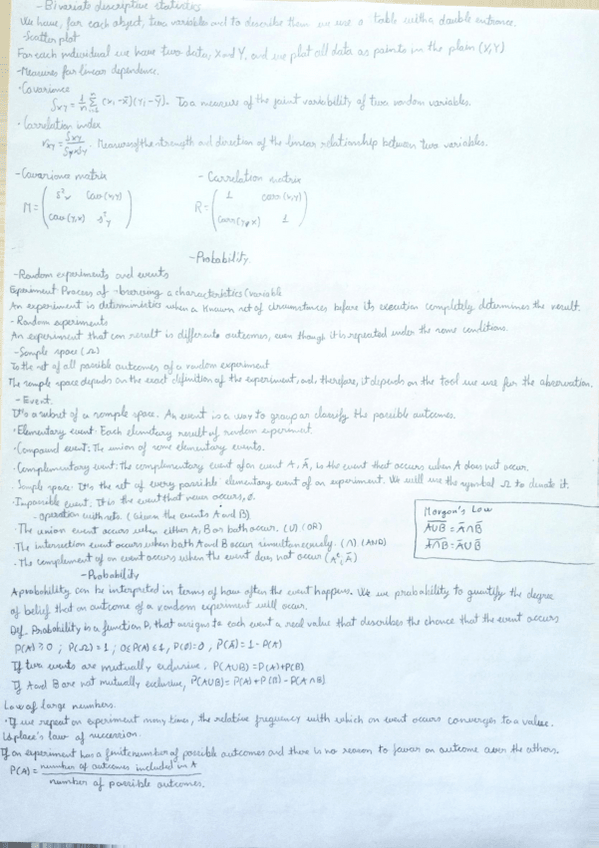 - Bivariate descriptive statistics
We have, for each object, two variables and to describe them we use a table with a double entrance.
- Scatter plot
For each individual we have two data, X and Y, and we plot all data as points in the plain (X,Y)
- Measures for linear dependence.
· Covariance
Sxy = 1/n Σ (xi - x̄)(yi - ȳ). Is a measure of the joint variability of two random variables.
· Correlation index
rxy = Sxy / SxSy. Measures the strength and direction of the linear relationship between two variables.
- Covariance matrix
M = ( s²x Cov(x,y) ; Cov(y,x) s²y )
- Correlation matrix
R = ( 1 corr(x,y) ; Corr(y,x) 1 )
- Probability
- Random experiments and events
Experiment: Process of observing a characteristics/variable
An experiment is deterministics when a known set of circumstances before its execution completely determines the result.
- Random experiments
An experiment that can result is differents outcomes, even though it is repeated under the same conditions.
- Sample space (Ω)
Is the set of all possible outcomes of a random experiment
The sample space depends on the exact definition of the experiment, and, therefore, it depends on the tool we use for the observation.
- Event.
It's a subset of a sample space. An event is a way to group or classify the possible outcomes.
· Elementary event: Each elementary result of random experiment.
· Compound event: The union of some elementary events.
· Complementary event: the complementary event of an event A, Ā, is the event that occurs when A does not occur.
· Sample space: It's the set of every possible elementary event of an experiment. We will use the symbol Ω to denote it.
· Impossible event: It is the event that never occurs, ø.
- Operation with sets. (Given the events A and B)
· The union event occurs when either A, B or both occur. (U) (OR)
· The intersection event occurs when both A and B occur simultaneously. (∩) (AND)
· The complement of an event occurs when the event does not occur (Aᶜ, Ā)
Morgan's Law
A̅U̅B̅ = Ā∩B̄
A̅∩̅B̅ = ĀUB̄
- Probability
A probability can be interpreted in terms of how often the event happens. We use probability to quantify the degree
of belief that an outcome of a random experiment will occur.
Def. Probability is a function P, that assigns to each event a real value that describes the chance that the event occurs
P(A) ≥ 0 ; P(Ω) = 1 ; 0≤P(A)≤1, P(Ø)=0, P(Ā) = 1 - P(A)
· If two events are mutually exclusive. P(AUB) = P(A)+P(B)
If A and B are not mutually exclusive, P(AUB) = P(A)+P(B) - P(A∩B)
Law of large numbers.
· If we repeat an experiment many times, the relative frequency with which an event occurs converges to a value.
Laplace's law of succession.
If an experiment has a finite number of possible outcomes and there is no reason to favor an outcome over the others.
P(A) = number of outcomes included in A
number of possible outcomes.